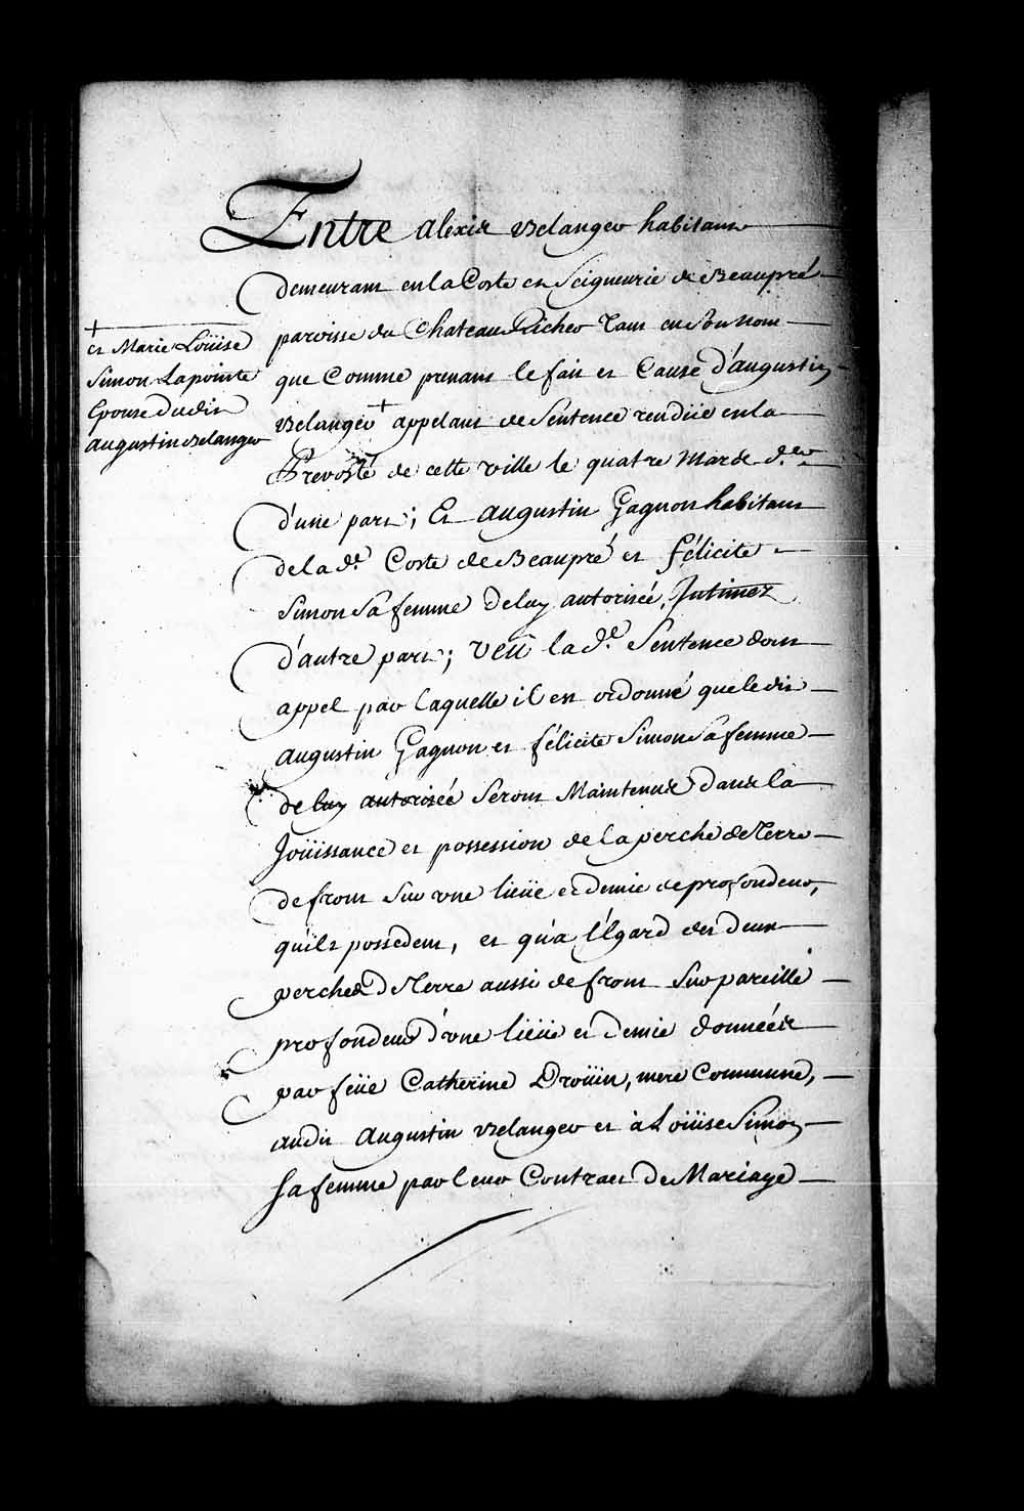 Entre alexis Belanger habitant
demeurant en la Coste et Seigneurie de Beaupré
paroisse du Chateau Richer tant en son nom
que Comme prenant le fait et Cause d'augustin
Belanger + appelant de Sentence rendüe en la
Prevosté de cette ville le quatre Mars d.er
d'une part; Et augustin Gagnon habitant
de la d.e Coste de Beaupré et félicité
Simon Sa femme de luy autorisée, Intimez
d'autre part; Veu la d.e Sentence dont
appel par laquelle il est ordonné que ledit
augustin Gagnon et félicité Simon Sa femme
de luy autorisée Seront Maintenus dans la
Joüissance et possession de la perche de Terre
de front Sur une lieüe et demie de profondeur,
qu'ils possedent, et qu'a l'égard des deux
perches de Terre aussi de front Sur pareille
profondeur d'une lieüe et demie données
par feüe Catherine Droüin, mere Commune,
audit Augustin Belanger et à Loüise Simon
Sa femme par leur Contract de Mariage
+
et Marie Loüise
Simon Lapointe
Epouse dudit
augustin Belanger